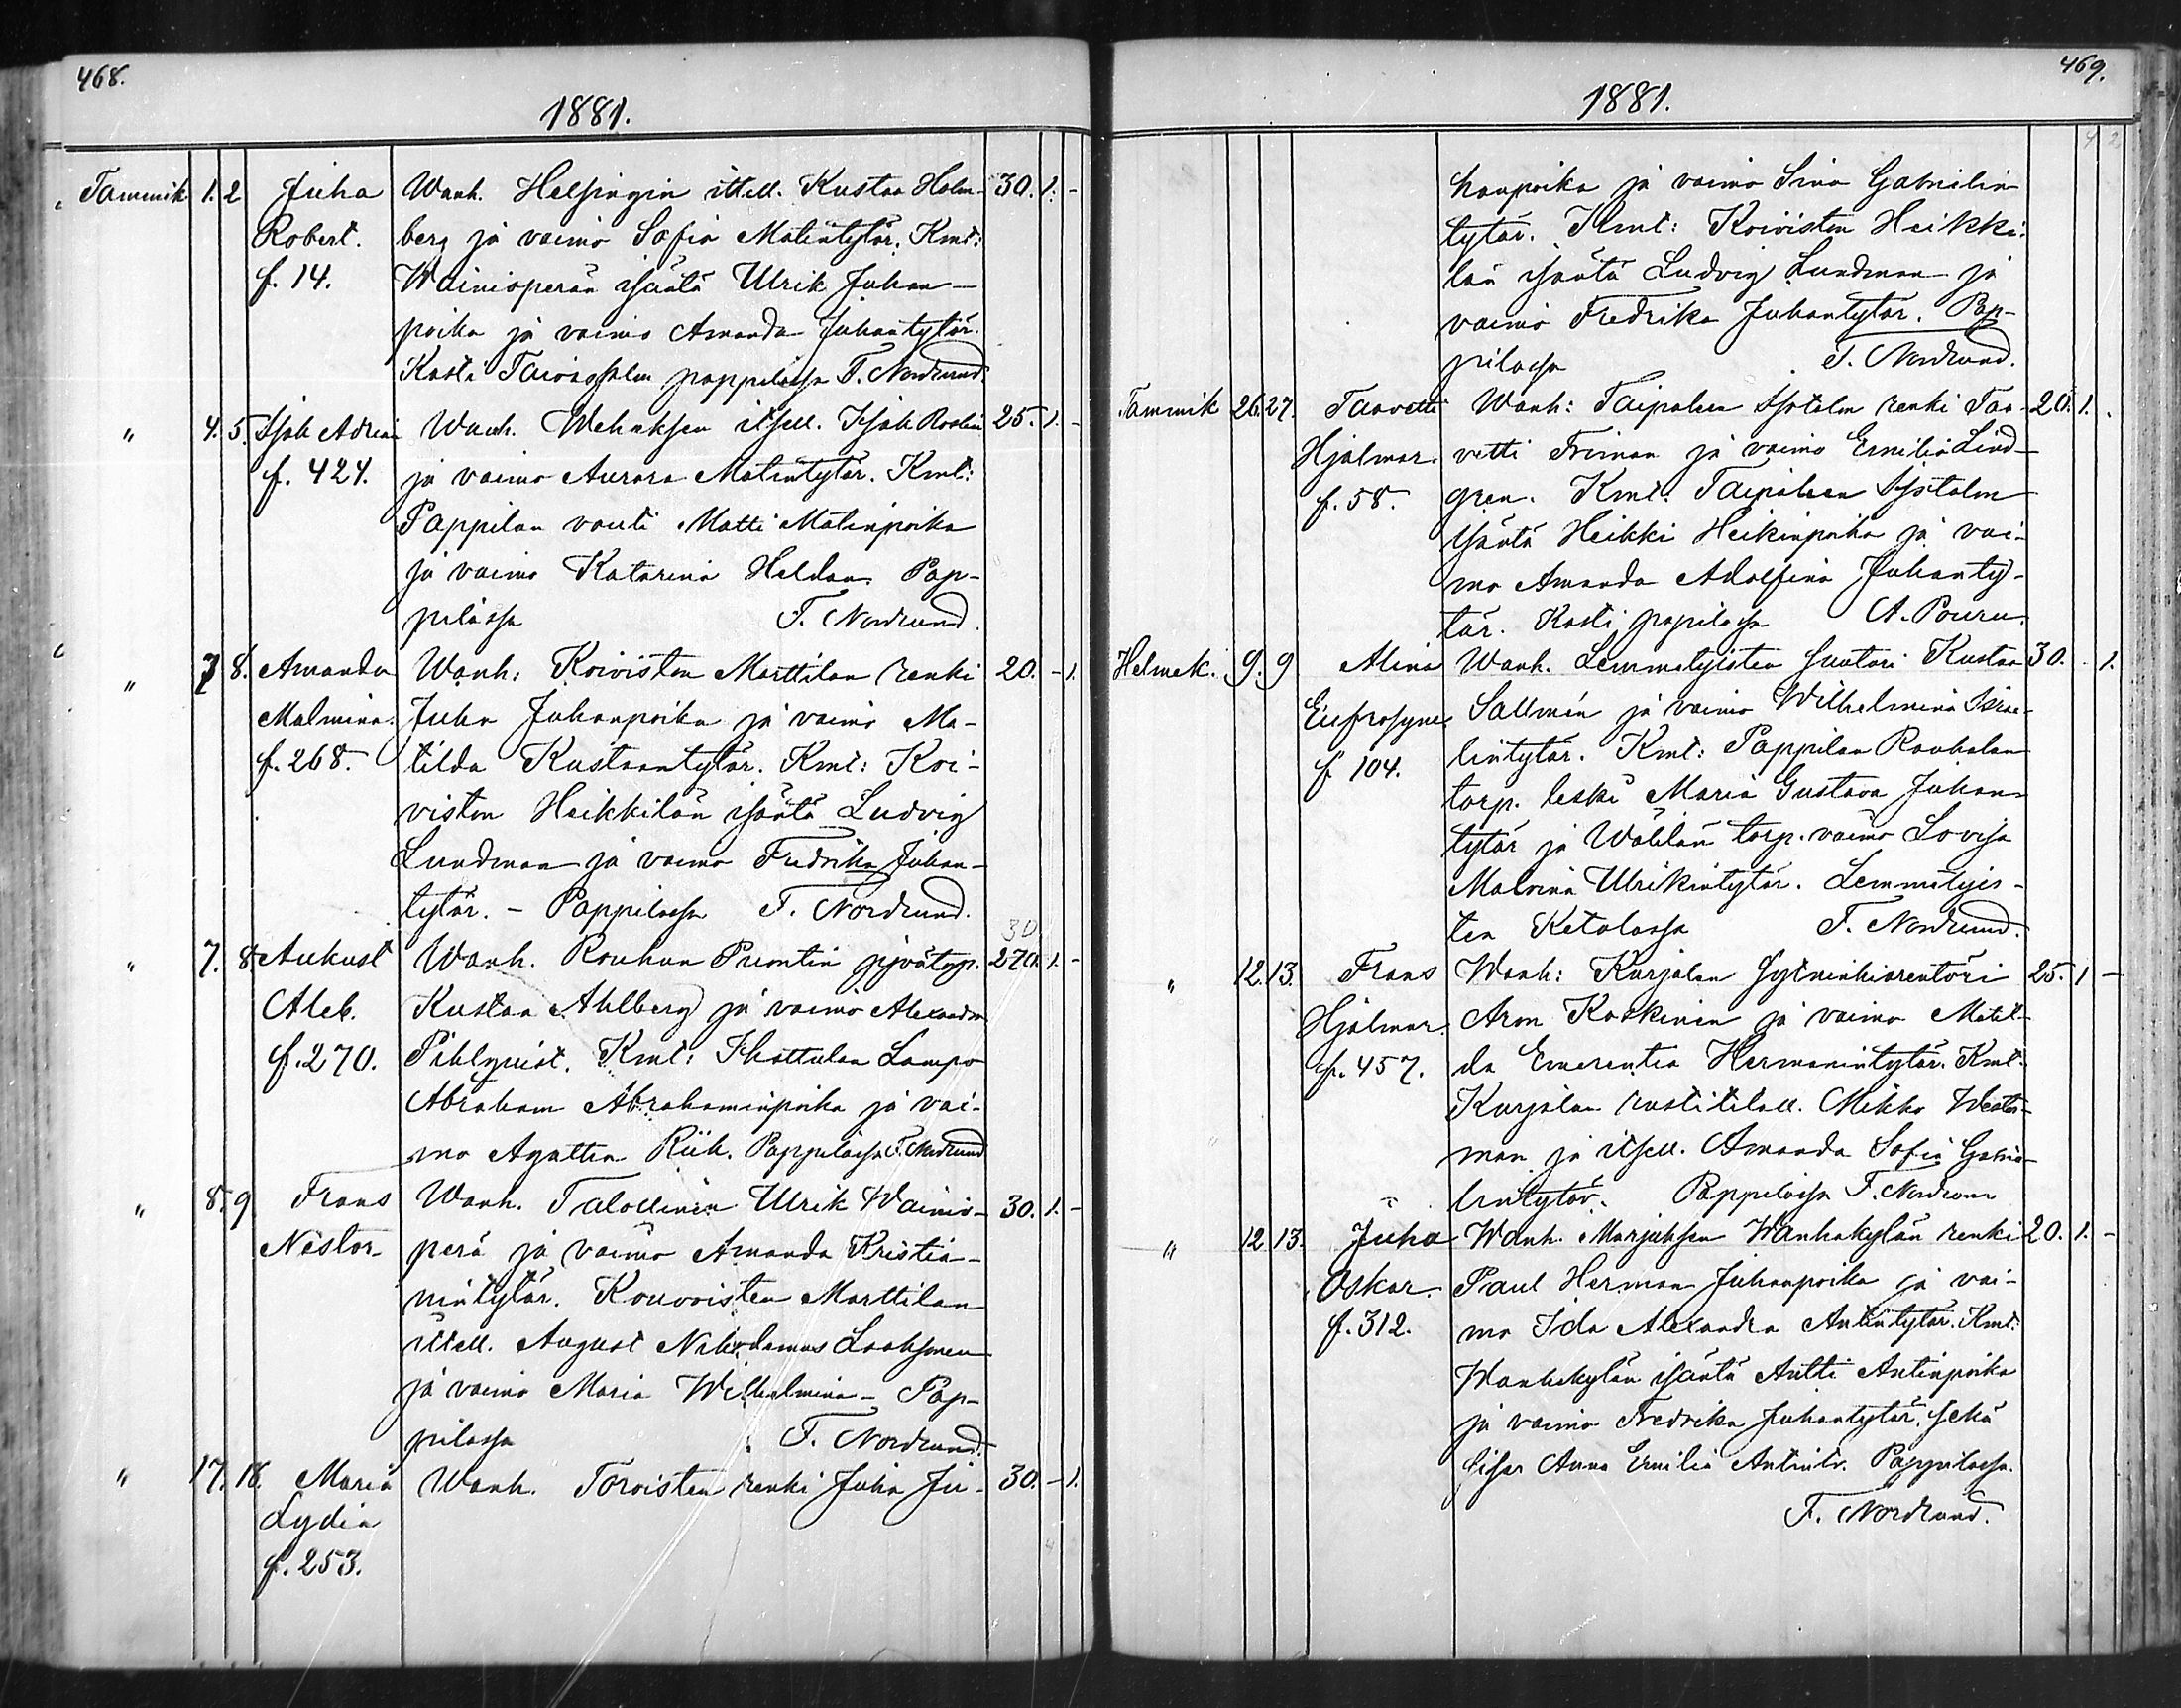 468.
1881.
Tammik 1. 2 Juha Wanh. Helsingin ittell. Kustaa Holm- 30. 1. -
Robert. berg ja vaimo Sofia Matintytär. Kmt:
f. 14. Wainioperän isäntä Ulrik Juhan-
poika ja vaimo Amanda Juhantytär.
Kasti pappilassa F. Nordlund.
" 4. 5. Isak Wanh. Wehaksen itsell. Isak 25. 1. -
f. 424. ja vaimo Aurora Matintytär. Kmt:
Pappilan vouti Matti Matinpoika
ja vaimo Katarina Heldan. Pap-
pilassa F. Nordlund.
" 7 8. Amanda Wanh: Koiviston Marttilan renki 20. - 1.
Malmina. Juha Juhanpoika ja vaimo Ma-
f. 268. tilda Kustaantytär. Kmt: Koi-
viston Heikkilän isäntä Ludvig
Lundman ja vaimo Fredrika Juhan-
tytär. - Pappilassa F. Nordlund.
30
" 7. 8 Aukust Wanh. Rouhun Puontin 270. 1. -
Aleks. Kustaa Ahlberg ja vaimo Alexandra
f. 270. Pihlquist. Kmt: Lampo
Abraham Abrahaminpoika ja vai-
mo Agatha Riik. Pappilassa F. Nordlund
" 8. 9 Frans Wanh. Talollinen Ulrik Wainio- 30. 1. -
Nestor perä ja vaimo Amanda Kristia-
nintytär. Kouvoisten Marttilan
ittell. August Nikodemus Laaksonen
ja vaimo Maria Wilhelmina - Pap-
pilassa F. Nordlund.
" 17. 18. Maria Wanh. Toroisten renki Juha Ju- 30. - 1.
Lydia
f. 253.
469.
1881.
hanpoika ja vaimo Sina Gabrielin
tytär. Kmt: Koiviston Heikki-
län isäntä Ludvig Lundman ja
vaimo Fredrika Juhantytär. Pap-
pilassa F. Nordlund.
Tammik 26. 27. Taavetti Wanh: Taipaleen Isotalon renki Taa- 20. 1.
Hjalmar. vetti Friman ja vaimo Emilia Lind-
f. 58. gren. Kmt: Taipaleen Isotalon
isäntä Heikki Heikinpoika ja vai-
mo Amanda Adolfina Juhanty-
tär. Kasti pappilassa A. Pouru.
Helmik. 9. 9 Alina Wanh. Lemmetyisten suutari Kustaa 30. - 1.
Eufrosyne Sallmén ja vaimo Wilhelmina Israe-
f 104. lintytär. Kmt: Pappilan Rauhalan
torp. leski Maria Gustava Juhan-
tytär ja Wälilän torp. vaimo Lovisa
Malvina Ulrikintytär. Lemmetyis-
ten Ketolassa F. Nordlund.
" 12. 13. Frans Wanh: Kurjalan 25. 1 -
Hjalmar. Aron Koskinen ja vaimo Matil-
f. 457. da Emerentia Hermanintytär. Kmt:
Kurjalan Mikko Wester-
man ja itsell. Amanda Sofia Gabrie-
lintytär. Pappilassa F. Nordlund
" 12 13. Juho Wanh. Marjuksen Wanhakylän renki 20. 1. -
Oskar. Paul Herman Juhanpoika ja vai-
f. 312. mo Ida Alexandra Antintytär. Kmt:
Wanhakylän isäntä Antti Antinpoika
ja vaimo Fredrika Juhantytär, sekä
sisar Anna Emilia Antintr. Pappilassa.
F. Nordlund.